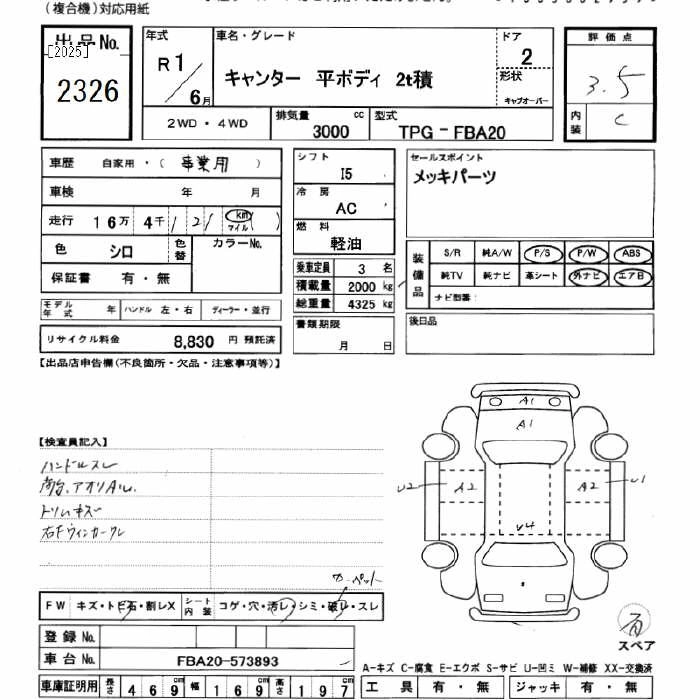 (複合機)対応用紙
出品No.
[2025]
2326
年式
R1/6月
車名・グレード
キャンター 平ボディ 2t積
ドア
2
形状
キャブオーバー
評価点
3.5
内装
C
2WD・4WD
排気量
3000 cc
型式
TPG-FBA20
車歴 自家用・(事業用)
車検 年 月
走行 16万 4千 121 km マイル ( )
色 シロ
色替
カラーNo.
保証書 有・無
シフト
I5
冷房
AC
燃料
軽油
セールスポイント
メッキパーツ
装備品
S/R 純A/W P/S P/W ABS
純TV 純ナビ 革シート 外ナビ エアB
ナビ型番:
乗車定員 3 名
積載量 2000 kg
総重量 4325 kg
モデル年式 年 ハンドル 左・右 ディーラー・並行
書類期限
月 日
後日品
リサイクル料金 8,830 円 預託済
【出品店申告欄(不良箇所・欠品・注意事項等)】
A1
A1
U2 A2 A2 U1
U4
【検査員記入】
ハンドルスレ
荷台、アオリAU.
トリムキズ
右Fウィンカークレ
カーペット
FW キズ・トビ石・割レX
シート内装 コゲ・穴・汚レ・シミ・破レ・スレ
登録No.
車台No. FBA20-573893
有
スペア
A-キズ C-腐食 E-エクボ S-サビ U-凹ミ W-補修 XX-交換済
車庫証明用 長さ 469 cm 幅 169 cm 高さ 197 cm
工具 有・無 ジャッキ 有・無